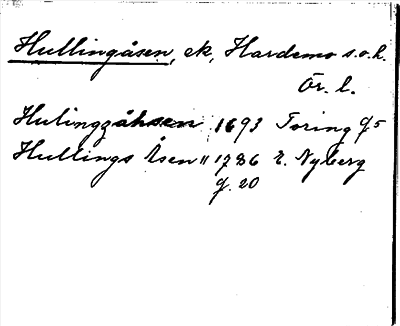 Hullingåsen, ek, Hardemo s.o.h.
Ör. l.
Hulingzåhsen 1693 Toring G5
Hullings Åsen " 1786 E. Nyberg
g. 20